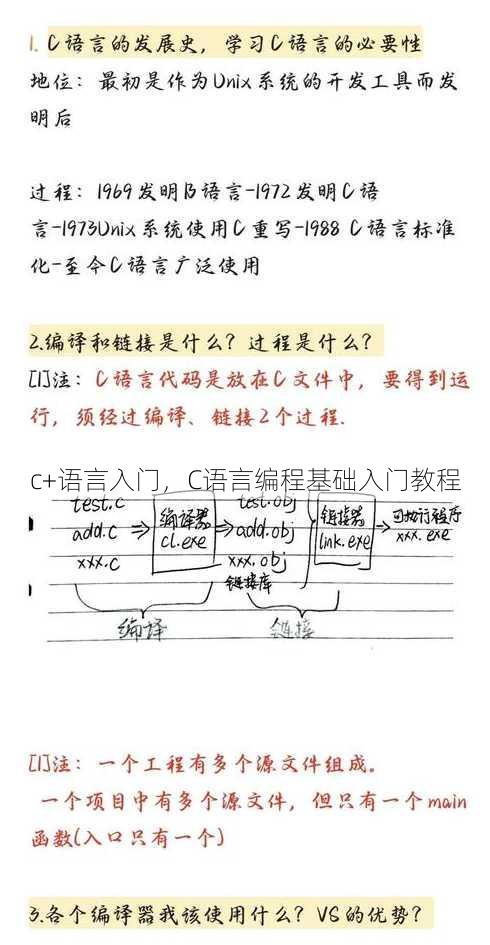 1. C语言的发展史，学习C语言的必要性
地位：最初是作为Unix系统的开发工具而发
明后
过程：1969发明B语言-1972发明C语
言-1973Unix系统使用C重写-1988 C语言标准
化-至今C语言广泛使用
2.编译和链接是什么？过程是什么？
[1]注：C语言代码是放在C文件中，要得到运
行，须经过编译、链接2个过程.
c+语言入门，C语言编程基础入门教程
test.c 编译器 test.obj 链接器 可执行程序
add.c cl.exe add.obj link.exe xxx.exe
xxx.c xxx.obj
链接库
编译 链接
[1]注：一个工程有多个源文件组成。
一个项目中有多个源文件，但只有一个main
函数(入口只有一个)
3.各个编译器我该使用什么？VS的优势？